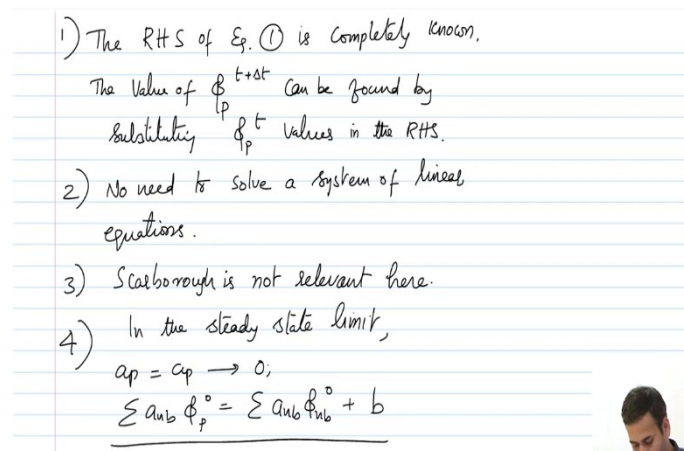 1) The RHS of Eq. ① is completely known.
The value of ϕ_p^{t+Δt} can be found by
substituting ϕ_p^t values in the RHS.
2) No need to solve a system of linear
equations.
3) Scarborough is not relevant here.
4) In the steady state limit,
a_p = a_p → 0;
Σ a_nb ϕ_p^0 = Σ a_nb ϕ_nb^0 + b